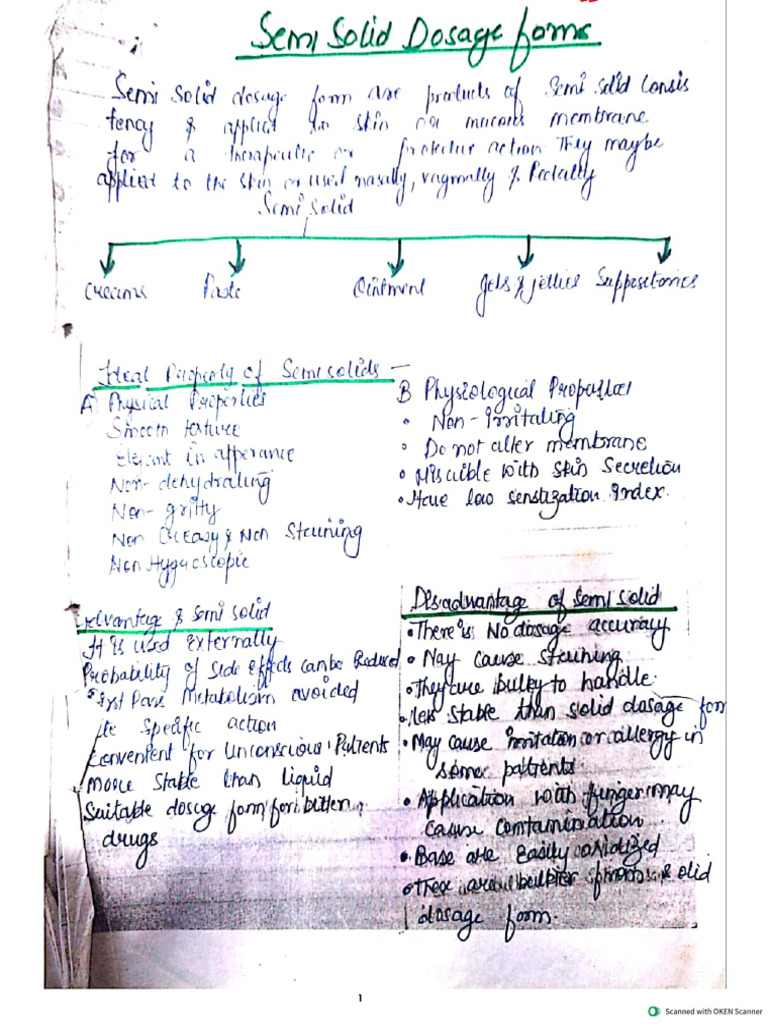 Semi Solid Dosage forms
Semi solid dosage form are products of semi solid Consis
tency & applied to skin or mucous membrane
for a therapeutic or protective action They maybe
applied to the skin or used nasally, vaginally & Rectally
Semi Solid
Creams Paste Ointment Gels & jellies Suppositories
Ideal Property of Semisolids -
A) Physical Properties
Smooth texture
Elegant in apperance
Non-dehydrating
Non-gritty
Non Greasy & Non Staining
Non Hygroscopic
B Physiological Properties
• Non-Irritating
• Do not alter membrane
• Miscible with skin Secretion
• Have low senstization Index.
Advantage & Semi solid
It is used Externally
Probability of Side effects can be Reduced
First Pass Metabolism avoided
Specific action
Convenient for Unconscious Patients
More Stable than liquid
Suitable dosage form for bitter
drugs
Disadvantage of Semi solid
• There is No dosage accuracy
• May Cause Staining
• They are bulky to handle.
• less Stable than solid dosage form
• May cause irritation or allergy in
some patients
• Application with finger may
Cause Contamination.
• Base are Easily oxidized
• There are solid
dosage form.
1
Scanned with OKEN Scanner